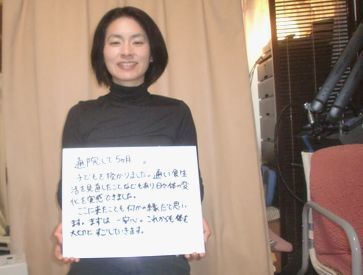 通院して5ヵ月 。
子どもを授かりました。通い食生
活を見直したことなどもあり自分の体の変
化を実感できました。
ここに来たことも何かの縁だと思い
ます。まずは一安心。これからも体を
大切にすごしていきます。